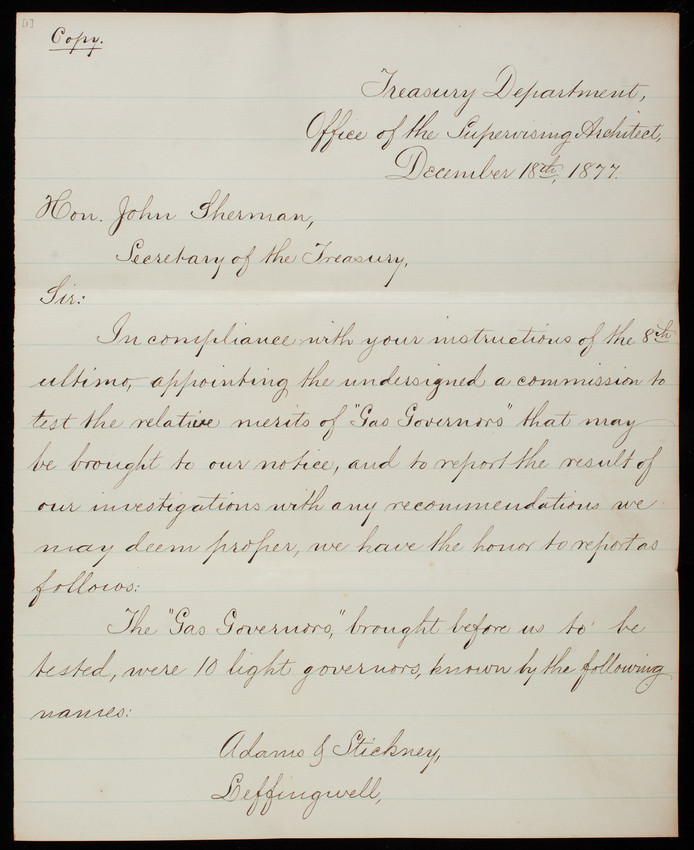 [1]
Copy.
Treasury Department,
Office of the Supervising Architect,
December 18th, 1877.
Hon. John Sherman,
Secretary of the Treasury,
Sir:
In compliance with your instructions of the 8th
ultimo, appointing the undersigned a commission to
test the relative merits of "Gas Governors" that may
be brought to our notice, and to report the result of
our investigations with any recommendations we
may deem proper, we have the honor to report as
follows:
The "Gas Governors," brought before us to be
tested, were 10 light governors, known by the following
names:
Adams & Stickney,
Leffingwell,